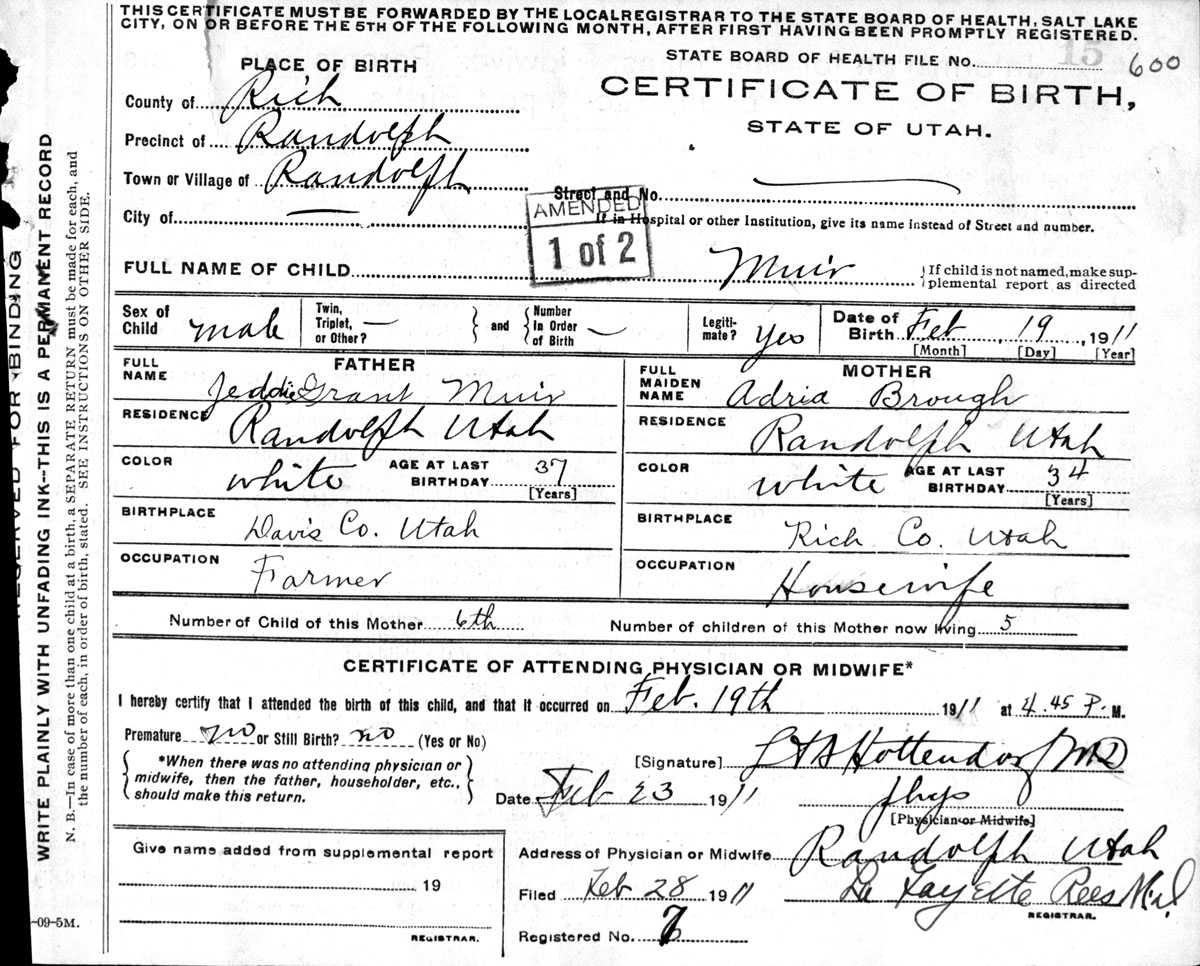 THIS CERTIFICATE MUST BE FORWARDED BY THE LOCAL REGISTRAR TO THE STATE BOARD OF HEALTH, SALT LAKE
CITY, ON OR BEFORE THE 5TH OF THE FOLLOWING MONTH, AFTER FIRST HAVING BEEN PROMPTLY REGISTERED.
STATE BOARD OF HEALTH FILE No. 15 600
PLACE OF BIRTH
CERTIFICATE OF BIRTH,
STATE OF UTAH.
County of Rich
Precinct of Randolph
Town or Village of Randolph
Street and No.
City of
If in Hospital or other Institution, give its name instead of Street and number.
AMENDED
1 of 2
FULL NAME OF CHILD Muir
{If child is not named, make sup-
plemental report as directed
Sex of Child male
Twin, Triplet, or Other? — } and { Number In Order of Birth —
Legiti-mate? Yes
Date of Birth Feb, 19, 1911
[Month] [Day] [Year]
FATHER
FULL NAME Jeddie Grant Muir
RESIDENCE Randolph Utah
COLOR white AGE AT LAST BIRTHDAY 37
[Years]
BIRTHPLACE Davis Co. Utah
OCCUPATION Farmer
MOTHER
FULL MAIDEN NAME Adria Brough
RESIDENCE Randolph Utah
COLOR white AGE AT LAST BIRTHDAY 34
[Years]
BIRTHPLACE Rich Co. Utah
OCCUPATION Housewife
Number of Child of this Mother 6th Number of children of this Mother now living 5
CERTIFICATE OF ATTENDING PHYSICIAN OR MIDWIFE*
I hereby certify that I attended the birth of this child, and that it occurred on Feb. 19th 1911 at 4.45 P.M.
Premature no or Still Birth? no (Yes or No)
{*When there was no attending physician or
midwife, then the father, householder, etc.,
should make this return.}
[Signature] Hottendorf MD
Date Feb 23 1911 phys
[Physician or Midwife]
Give name added from supplemental report
19
REGISTRAR.
Address of Physician or Midwife Randolph Utah
Filed Feb 28 1911 La Fayette Rees M.d
REGISTRAR.
Registered No. 7
RESERVED FOR BINDING
WRITE PLAINLY WITH UNFADING INK--THIS IS A PERMANENT RECORD
N. B.—In case of more than one child at a birth, a SEPARATE RETURN must be made for each, and
the number of each, in order of birth, stated. SEE INSTRUCTIONS ON OTHER SIDE.
-09-5M.